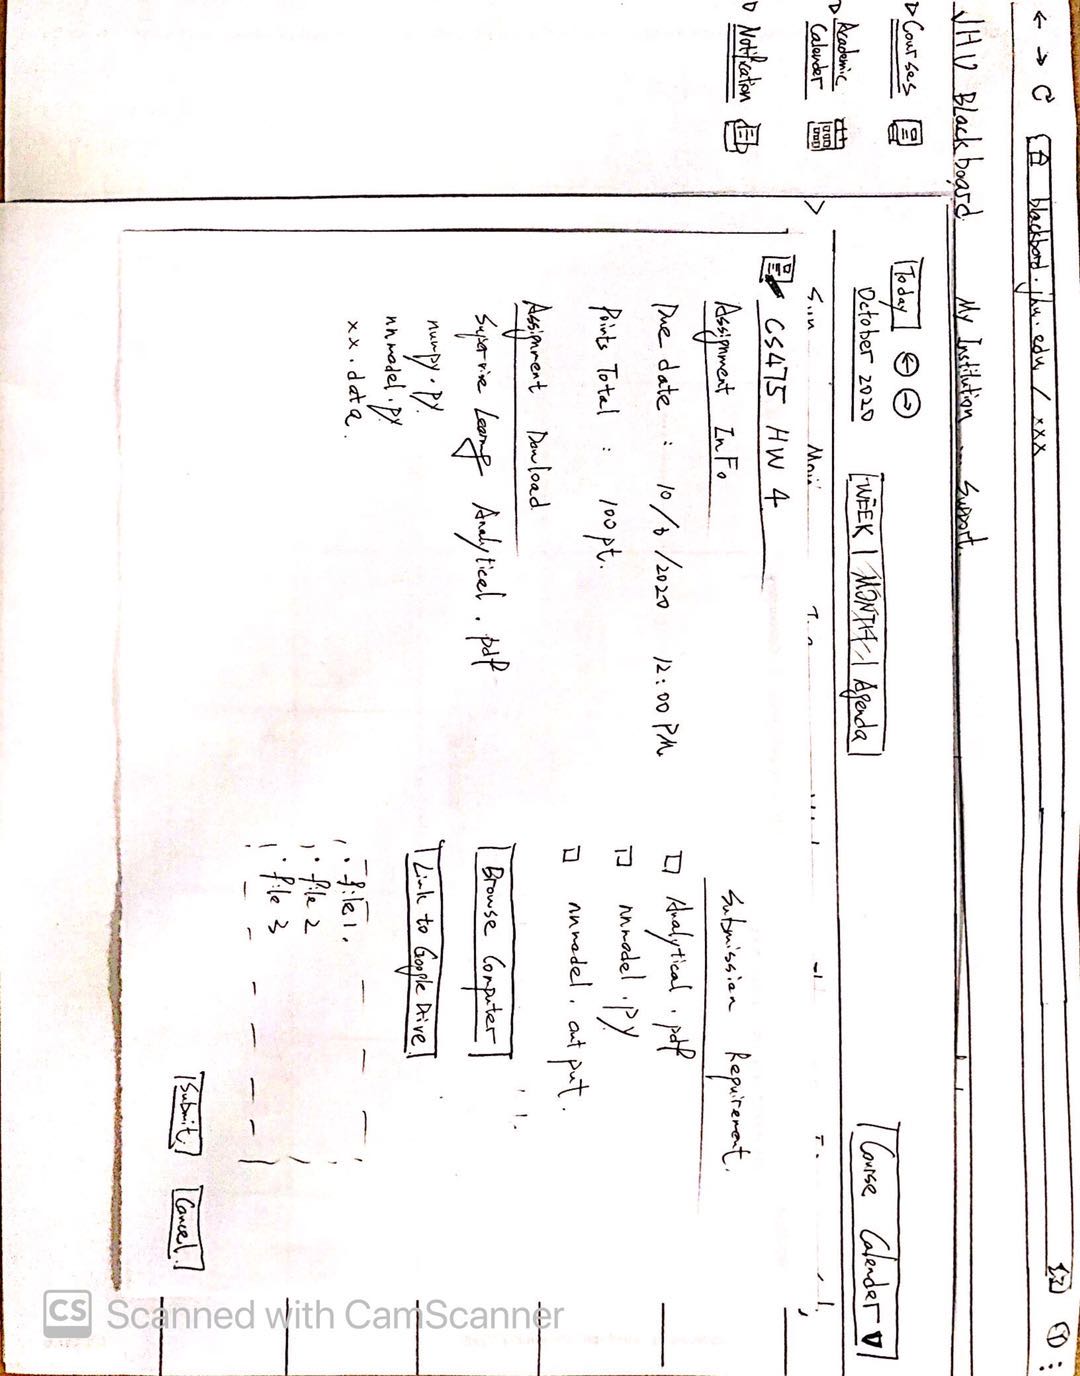 ← → C blackbord.jhu.edu / xxx
JHU Blackboard My Institution Support
Courses
Academic
Calender
Notification
Today ← →
October 2020
WEEK | MONTH | Agenda
Course Calender
Sun Mon
CS475 HW 4
Assignment InFo
Due date : 10/6/2020 12:00 PM
Points Total : 100 pt.
Assignment Download
Supervise Learning Analytical.pdf
numpy.py
nnmodel.py
xx.data
Submission Requirement.
Analytical.pdf
nnmodel.py
nnmodel.output.
Browse Computer
Link to Google Drive
· file 1.
· file 2
· file 3
Submit Cancel
CS Scanned with CamScanner